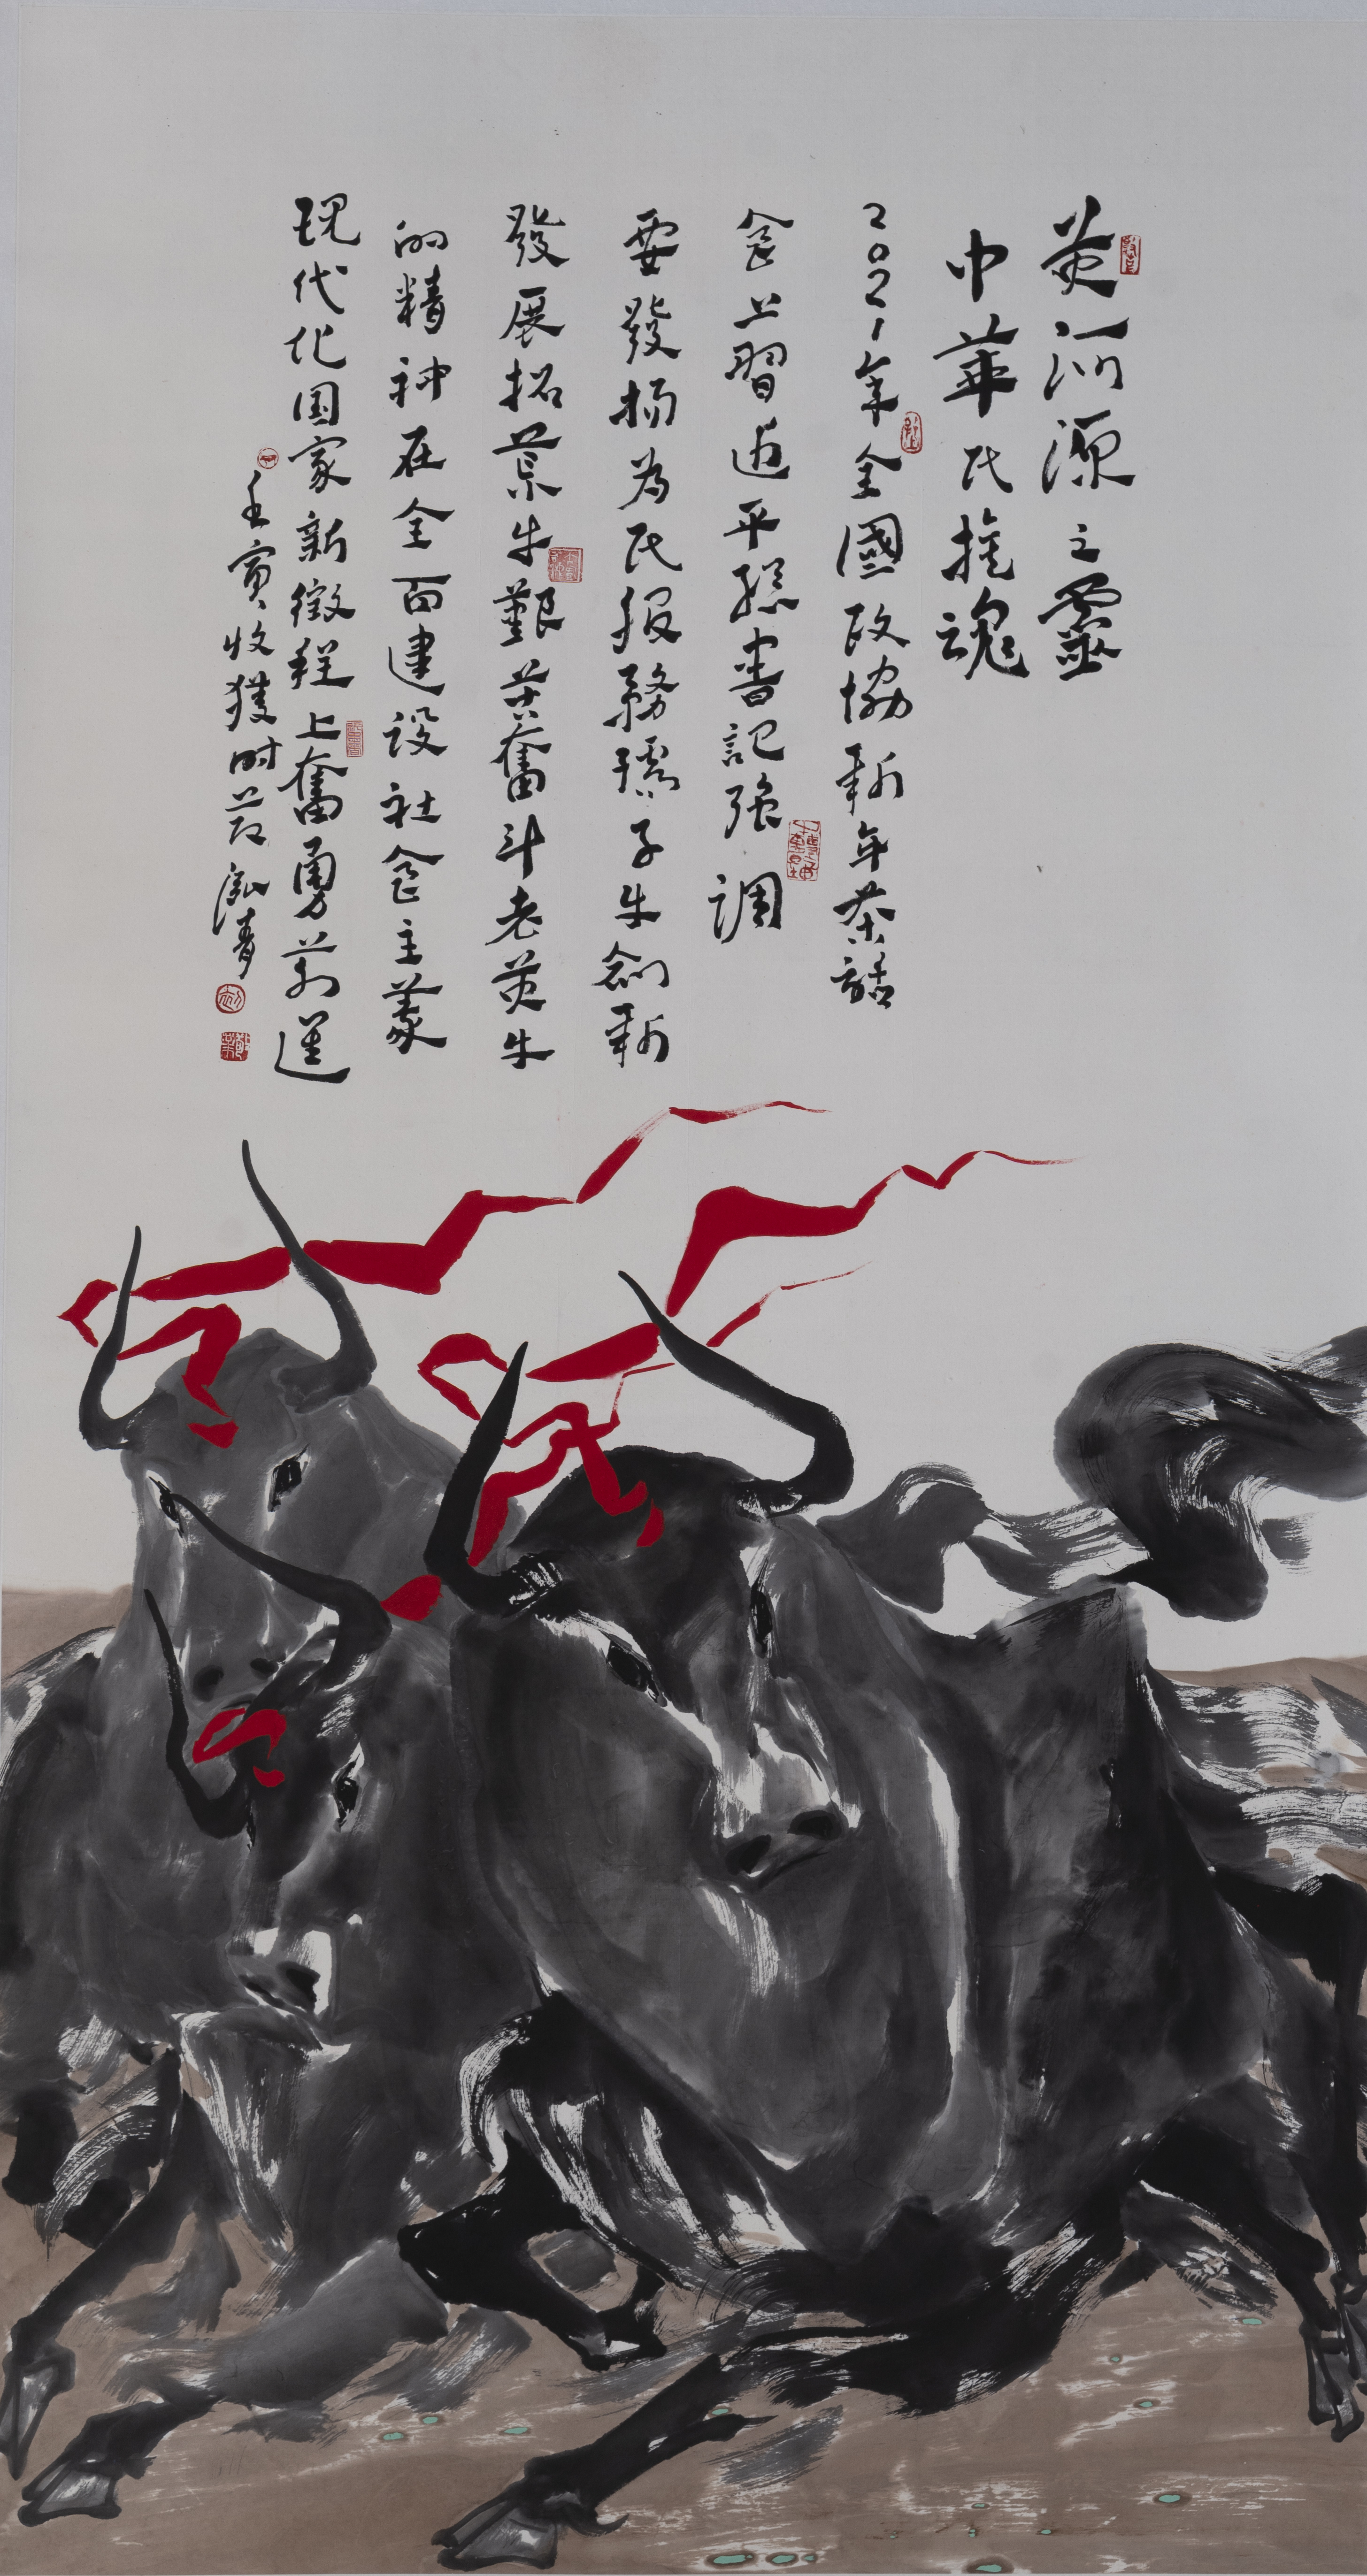 黄河源之靈
中華民族魂
2021年全國政協新年茶話
會上習近平總書記強調
要發揚為民服務孺子牛創新
發展拓荒牛艱苦奮斗老黄牛
的精神在全面建设社會主義
現代化国家新徵程上奮勇前進
壬寅收獲时节